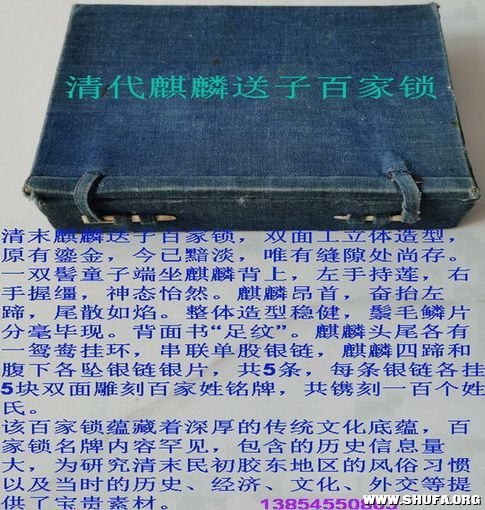 清代麒麟送子百家锁
清末麒麟送子百家锁，双面工立体造型，
原有鎏金，今已黯淡，唯有缝隙处尚存。
一双髫童子端坐麒麟背上，左手持莲，右
手握缰，神态怡然。麒麟昂首，奋抬左
蹄，尾散如焰。整体造型稳健，鬃毛鳞片
分毫毕现。背面书“足纹”。麒麟头尾各有
一鸳鸯挂环，串联单股银链，麒麟四蹄和
腹下各坠银链银片，共5条，每条银链各挂
5块双面雕刻百家姓铭牌，共镌刻一百个姓
氏。
该百家锁蕴藏着深厚的传统文化底蕴，百
家锁名牌内容罕见，包含的历史信息量
大，为研究清末民初胶东地区的风俗习惯
以及当时的历史、经济、文化、外交等提
供了宝贵素材。
WWW.SHUFA.ORG